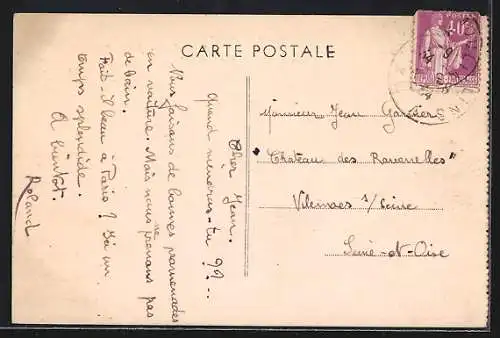 CARTE POSTALE
POSTES
40c
Cher Jean.
Quand viendras-tu ??...
Nous faisons de bonnes promenades
en voiture. Mais nous ne prenons pas
de bain.
Fait-il beau à Paris ? Ici un
temps splendide.
A bientôt.
Roland
Monsieur Jean Gautier
"Château des Ravenelles"
Vilennes s/ Seine
Seine-et-Oise